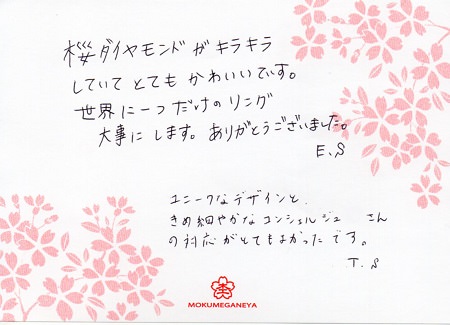 桜ダイヤモンドがキラキラ
していて とても かわいいです。
世界に一つだけのリング
大事に します。ありがとうございました。
E.S
ユニークなデザインと、
きめ細やかなコンシェルジュ さん
の対応がとてもよかったです。
T.S
MOKUMEGANEYA